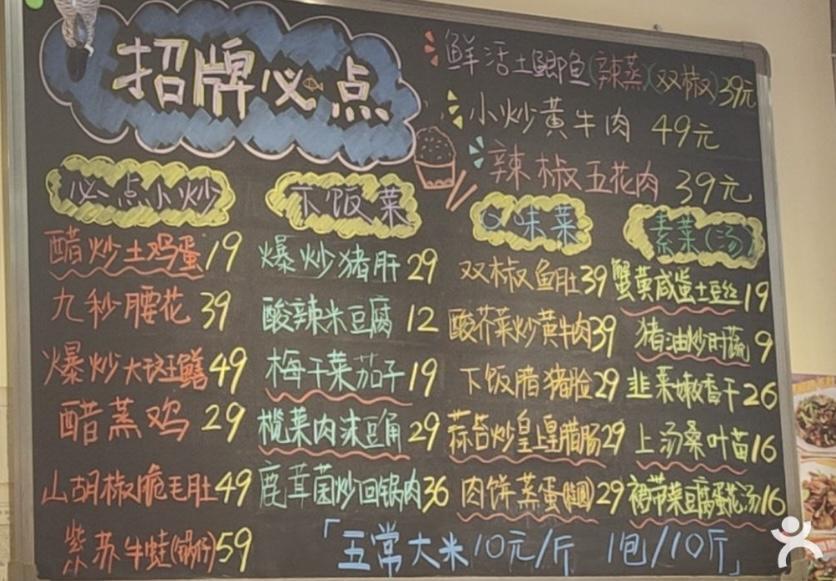 招牌必点
鲜活土鲫鱼(辣蒸)(双椒)39元
小炒黄牛肉 49元
辣椒五花肉 39元
必点小炒
醋炒土鸡蛋 19
九秒腰花 39
爆炒大斑鳝 49
醋蒸鸡 29
山胡椒脆毛肚 49
紫苏牛蛙(锅仔) 59
下饭菜
爆炒猪肝 29
酸辣米豆腐 12
梅干菜茄子 19
榄菜肉沫豆角 29
鹿茸菌炒回锅肉 36
口味菜
双椒鱼肚 39
酸芥菜炒黄牛肉 39
下饭腊猪脸 29
蒜苔炒皇上皇腊肠 29
肉饼蒸蛋 29
素菜(汤)
蟹黄咸蛋土豆丝 19
猪油炒时蔬 9
韭菜嫩香干 26
上汤桑叶苗 16
裙带菜豆腐蛋花汤 16
「五常大米10元/斤 1包/10斤」